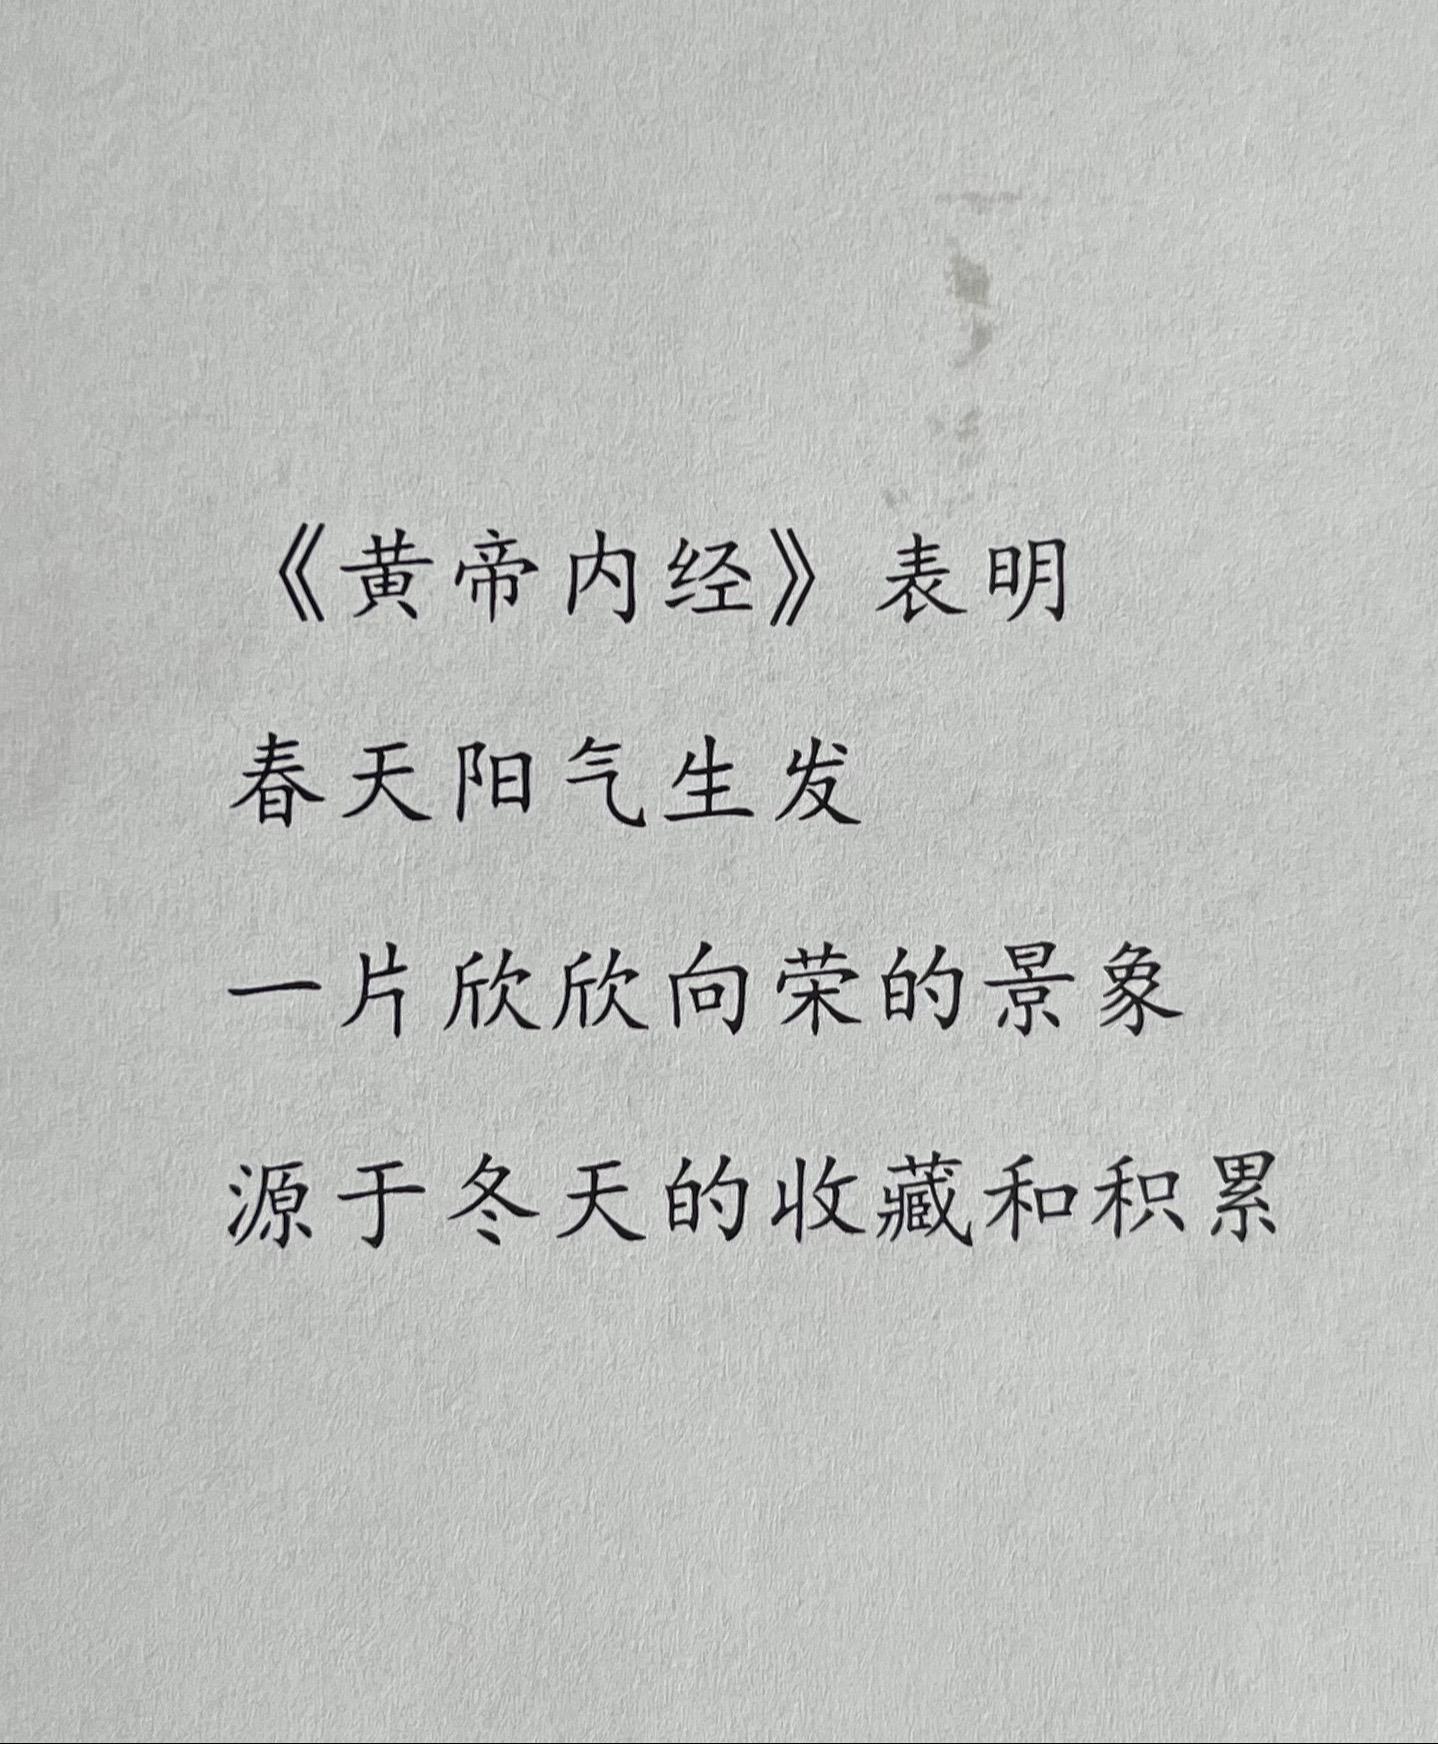 《黄帝内经》表明
春天阳气生发
一片欣欣向荣的景象
源于冬天的收藏和积累